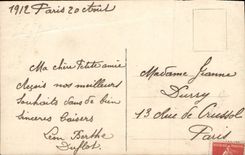 1912 Paris 20 Août
Ma chère Petite amie
Reçois nos meilleurs
Souhaits dans de bien
Sincères baisers
Léon Berthe
Duflot
Madame Jeanne
Durry
13 Rue de Crussol
Paris